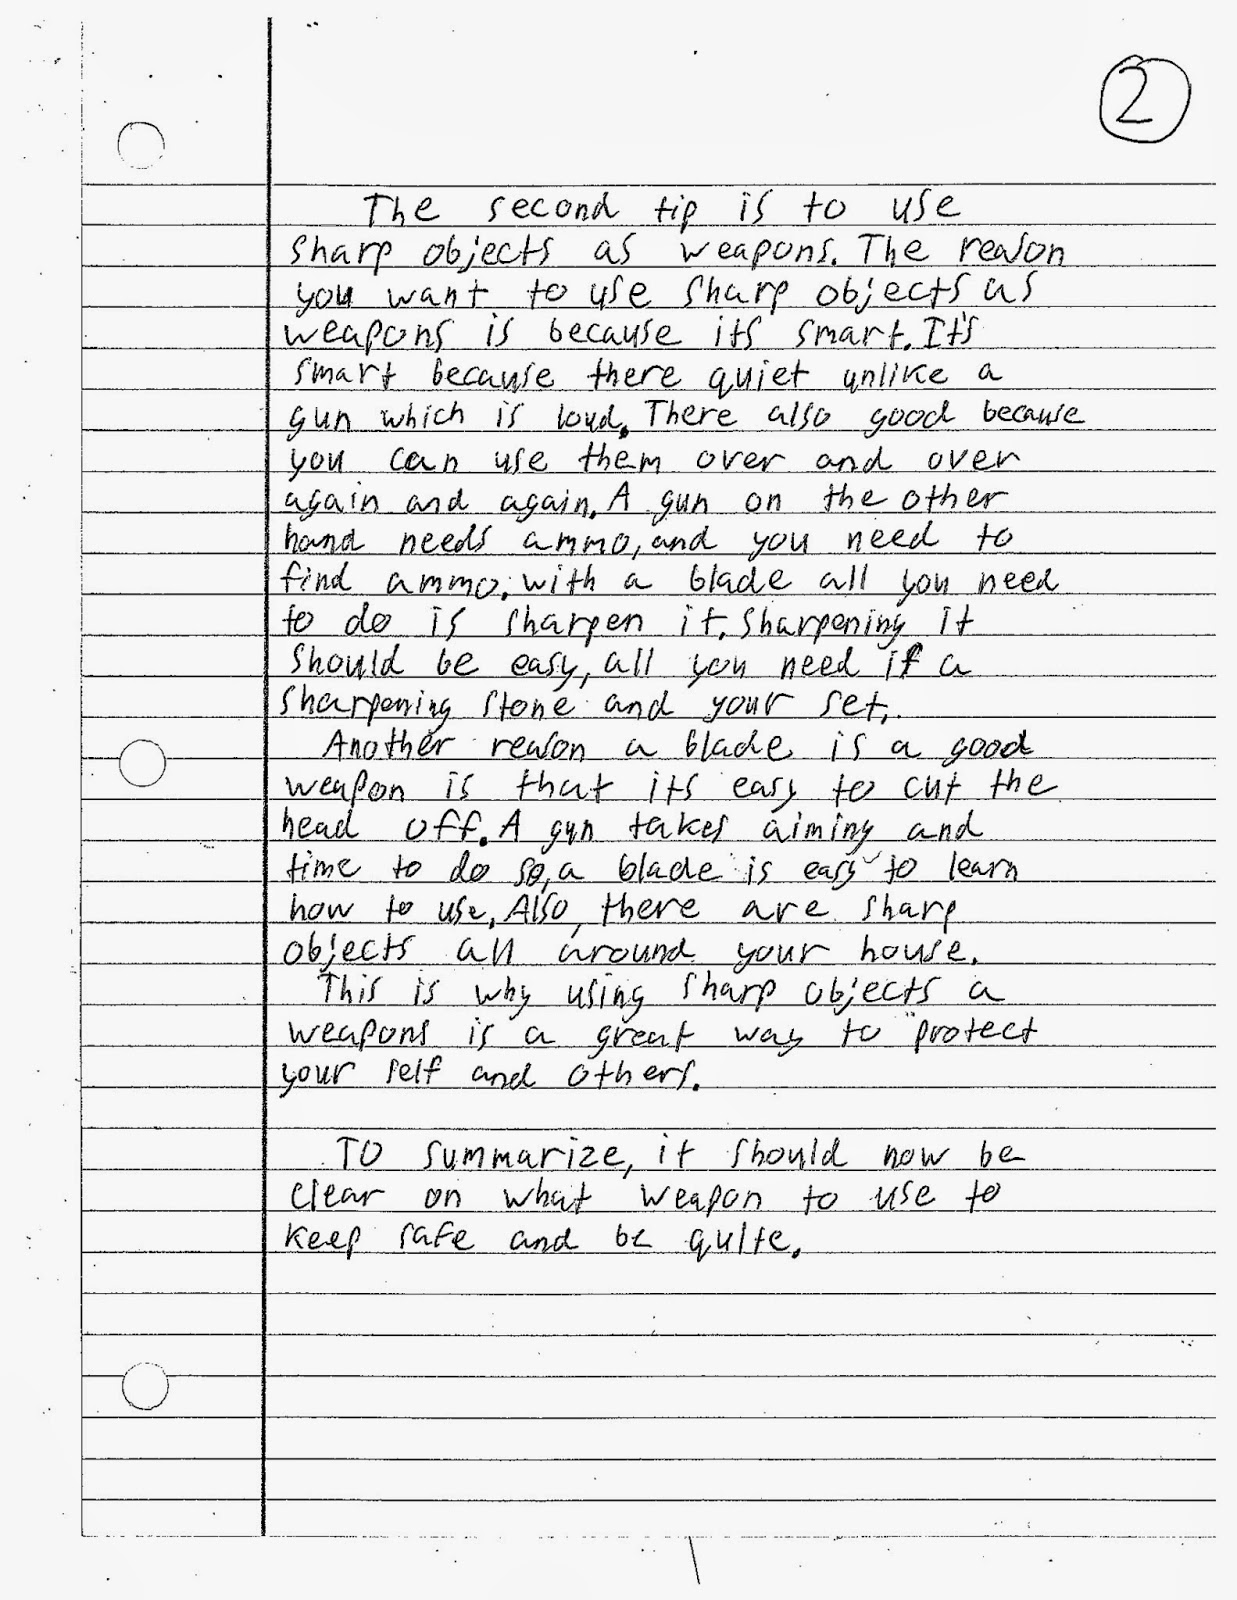 2
The second tip is to use
sharp objects as weapons. The reason
you want to use sharp objects as
weapons is because its smart. It's
smart because there quiet unlike a
gun which is loud. There also good because
you can use them over and over
again and again. A gun on the other
hand needs ammo, and you need to
find ammo. with a blade all you need
to do is sharpen it. Sharpening it
should be easy, all you need if a
sharpening stone and your set.
Another reason a blade is a good
weapon is that its easy to cut the
head off. A gun takes aiming and
time to do so, a blade is easy to learn
how to use. Also, there are sharp
objects all around your house.
This is why using sharp objects a
weapons is a great way to protect
your self and others.
To summarize, it should now be
clear on what weapon to use to
keep safe and be quite.